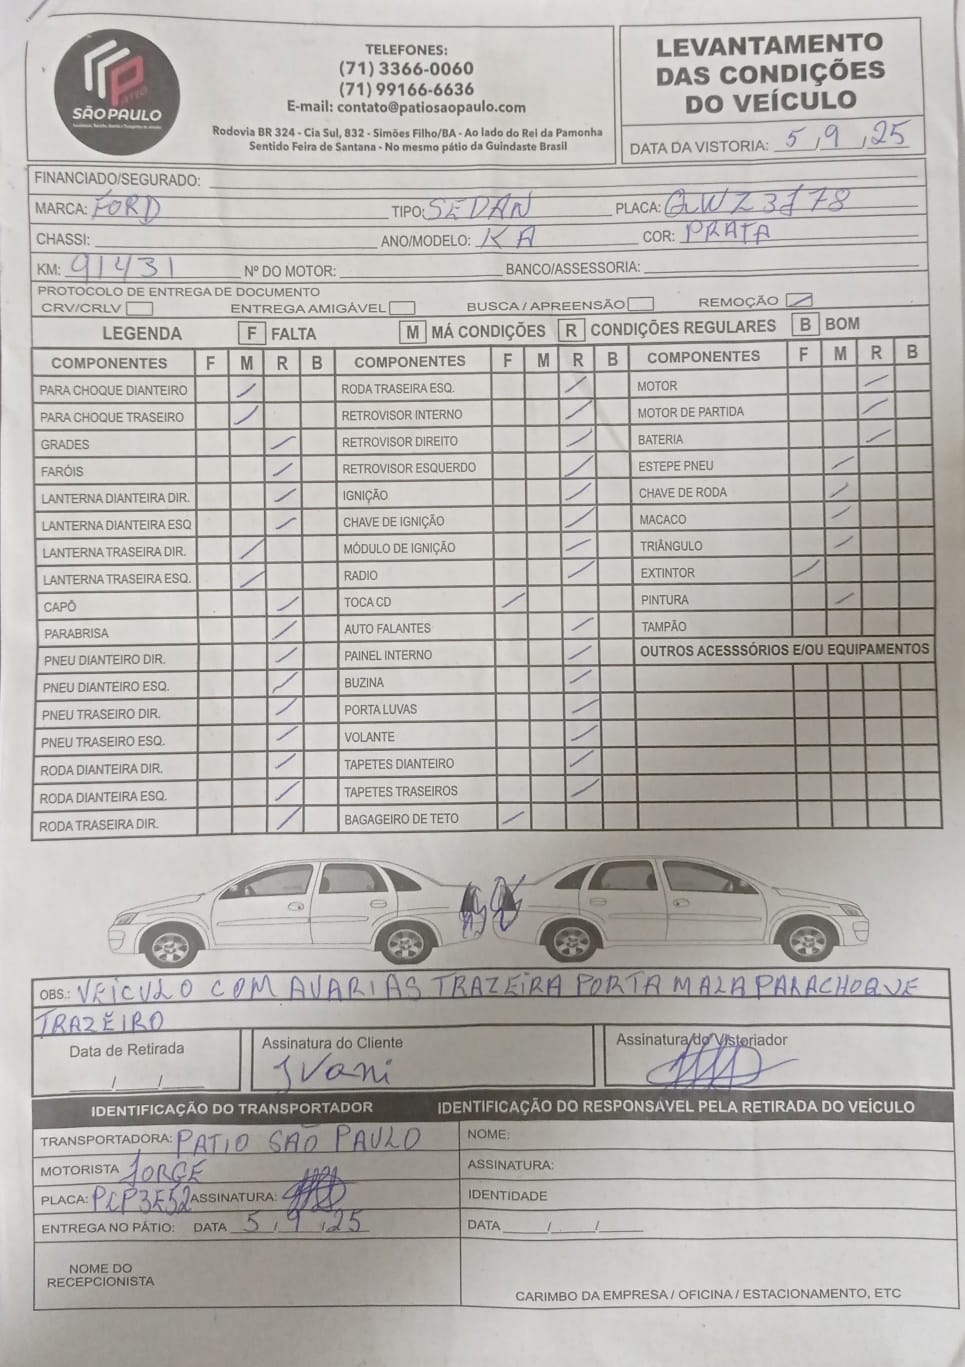 SÃO PAULO
TELEFONES:
(71) 3366-0060
(71) 99166-6636
E-mail: contato@patiosaopaulo.com
Rodovia BR 324 - Cia Sul, 832 - Simões Filho/BA - Ao lado do Rei da Pamonha
Sentido Feira de Santana - No mesmo pátio da Guindaste Brasil
LEVANTAMENTO
DAS CONDIÇÕES
DO VEÍCULO
DATA DA VISTORIA: 5/9/25
FINANCIADO/SEGURADO:
MARCA: FORD TIPO: SEDAN PLACA: QWZ3J78
CHASSI: ANO/MODELO: KA COR: PRATA
KM: 91431 Nº DO MOTOR: BANCO/ASSESSORIA:
PROTOCOLO DE ENTREGA DE DOCUMENTO
CRV/CRLV ENTREGA AMIGÁVEL BUSCA / APREENSÃO REMOÇÃO
LEGENDA F FALTA M MÁ CONDIÇÕES R CONDIÇÕES REGULARES B BOM
COMPONENTES F M R B COMPONENTES F M R B COMPONENTES F M R B
PARA CHOQUE DIANTEIRO RODA TRASEIRA ESQ. MOTOR
PARA CHOQUE TRASEIRO RETROVISOR INTERNO MOTOR DE PARTIDA
GRADES RETROVISOR DIREITO BATERIA
FARÓIS RETROVISOR ESQUERDO ESTEPE PNEU
LANTERNA DIANTEIRA DIR. IGNIÇÃO CHAVE DE RODA
LANTERNA DIANTEIRA ESQ CHAVE DE IGNIÇÃO MACACO
LANTERNA TRASEIRA DIR. MÓDULO DE IGNIÇÃO TRIÂNGULO
LANTERNA TRASEIRA ESQ. RADIO EXTINTOR
CAPÔ TOCA CD PINTURA
PARABRISA AUTO FALANTES TAMPÃO
PNEU DIANTEIRO DIR. PAINEL INTERNO OUTROS ACESSSÓRIOS E/OU EQUIPAMENTOS
PNEU DIANTEIRO ESQ. BUZINA
PNEU TRASEIRO DIR. PORTA LUVAS
PNEU TRASEIRO ESQ. VOLANTE
RODA DIANTEIRA DIR. TAPETES DIANTEIRO
RODA DIANTEIRA ESQ. TAPETES TRASEIROS
RODA TRASEIRA DIR. BAGAGEIRO DE TETO
OBS.: VEÍCULO COM AVARIAS TRAZEIRA PORTA MALA PARACHOQUE
TRAZEIRO
Data de Retirada Assinatura do Cliente Assinatura do Vistoriador
___/___/___ Ivani
IDENTIFICAÇÃO DO TRANSPORTADOR IDENTIFICAÇÃO DO RESPONSÁVEL PELA RETIRADA DO VEÍCULO
TRANSPORTADORA: PATIO SÃO PAULO NOME:
MOTORISTA JORGE ASSINATURA:
PLACA: PCP3E52 ASSINATURA: IDENTIDADE
ENTREGA NO PÁTIO: DATA 5/9/25 DATA ___/___/___
NOME DO
RECEPCIONISTA
CARIMBO DA EMPRESA / OFICINA / ESTACIONAMENTO, ETC